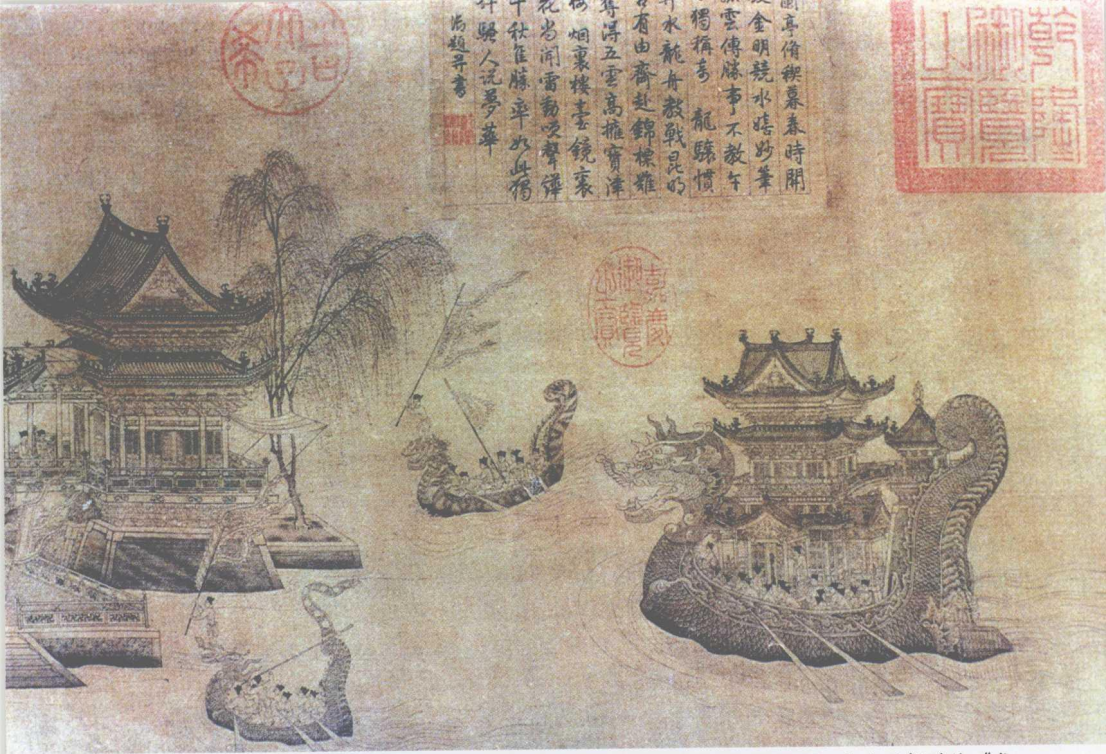 乾隆
御覽
之寶
亭脩禊暮春時開
金明競水嬉妙筆
雲傳勝事不教午
獨稱奇 龍驤慣
水龍舟教戰昆明
有由齊赴錦標雖
奪得五雲高擁寶津
烟裏樓臺鏡裏
花尚聞雷動喚聲譁
千秋佳勝率如此獨
許騷人说夢華
書
古希天子
嘉慶
御覽
之寶